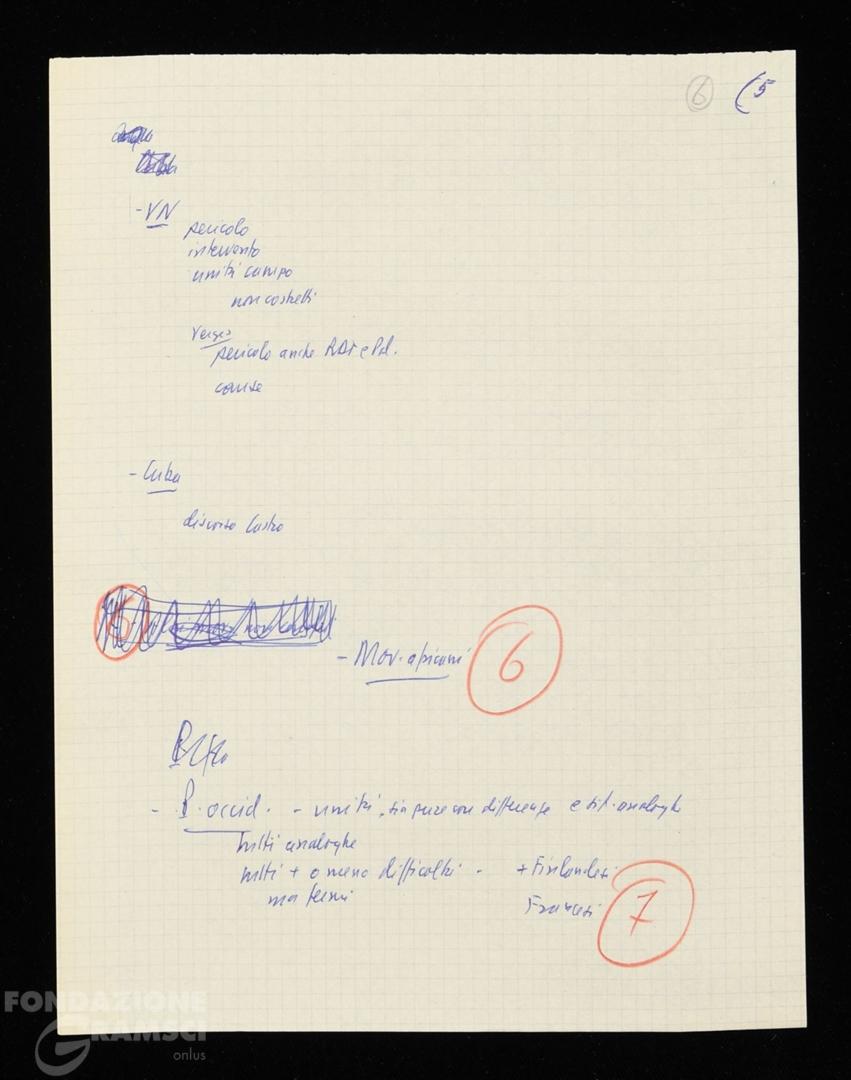 6 (5
- VN
pericolo
intervento
unità campo
non costretti
pericolo anche RDT e Pol.
cause
- Cuba
discorso Castro
- Mov. africani 6
- P. occid. - unità, sia pure con differenze e sit. analoghe
tutti analoghe
tutti + o meno difficoltà - + Finlandesi
ma fermi Francesi 7
FONDAZIONE
GRAMSCI
onlus